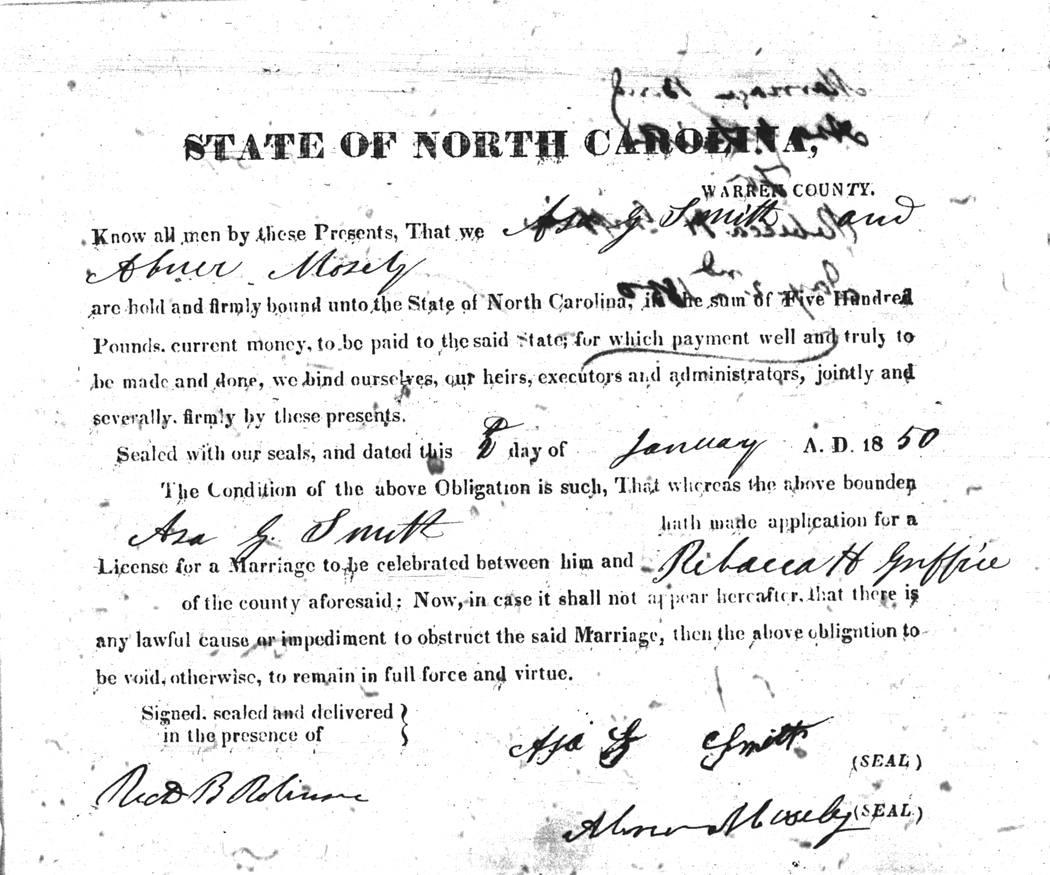 STATE OF NORTH CAROLINA,
WARREN COUNTY.
Know all men by these Presents, That we Asa G Smith and
Abner Mosely
are hold and firmly bound unto the State of North Carolina, in the sum of Five Hundred
Pounds. current money, to be paid to the said State; for which payment well and truly to
be made and done, we bind ourselves, our heirs, executors and administrators, jointly and
severally. firmly by these presents.
Sealed with our seals, and dated this day of January A. D. 1850
The Condition of the above Obligation is such, That whereas the above bounden
Asa G. Smith hath made application for a
License for a Marriage to be celebrated between him and Rebacca H Griffice
of the county aforesaid; Now, in case it shall not appear hereafter, that there is
any lawful cause or impediment to obstruct the said Marriage, then the above obligation to
be void, otherwise, to remain in full force and virtue.
Signed, sealed and delivered }
in the presence of
Asa G Smith (SEAL)
B Robinson
Abner Mosely (SEAL)